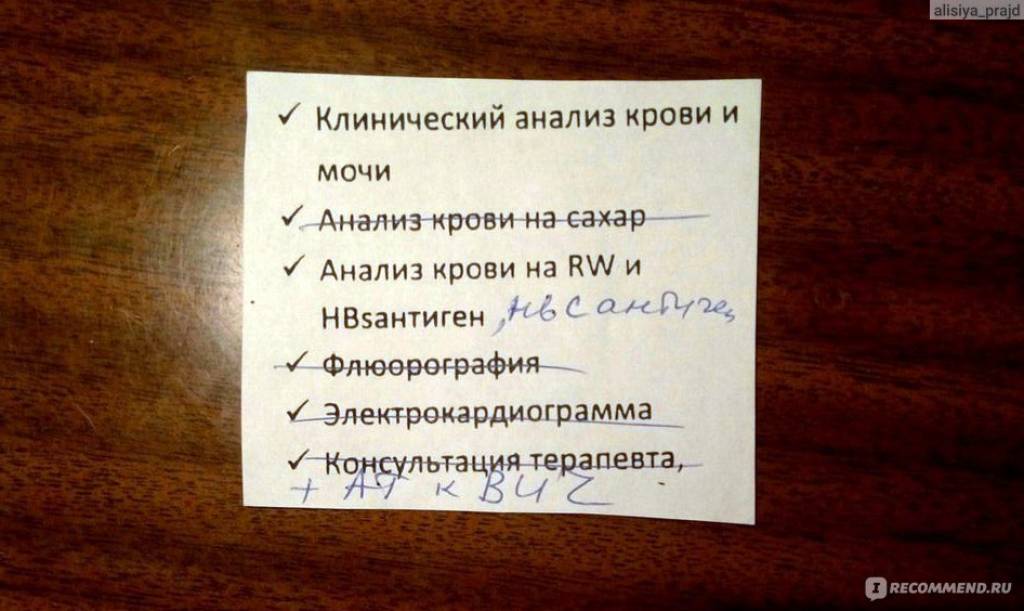 alisiya_prajd
✓ Клинический анализ крови и
мочи
✓ Анализ крови на сахар
✓ Анализ крови на RW и
HBsантиген ,НвСантиген
✓ Флюорография
✓ Электрокардиограмма
✓ Консультация терапевта,
+ АТ к ВИЧ
IRECOMMEND.RU